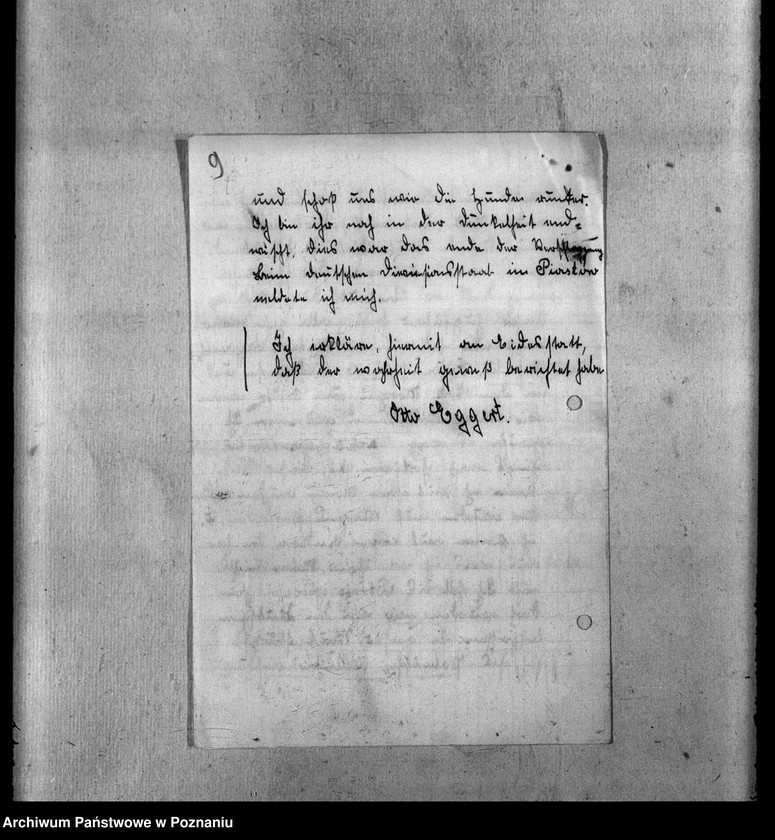 9
und schoß uns wie die Hunde runter.
Ich bin ihr noch in der Dunkelheit end-
wischt, dies war das ende der
Beim deutschen Diviesionsstaab im Piastów
meldete ich mich.
Ich erkläre, hiermit an Eidesstatt,
daß der wahrheit gemeß berichtet habe
Otto Eggert.
Archiwum Państwowe w Poznaniu